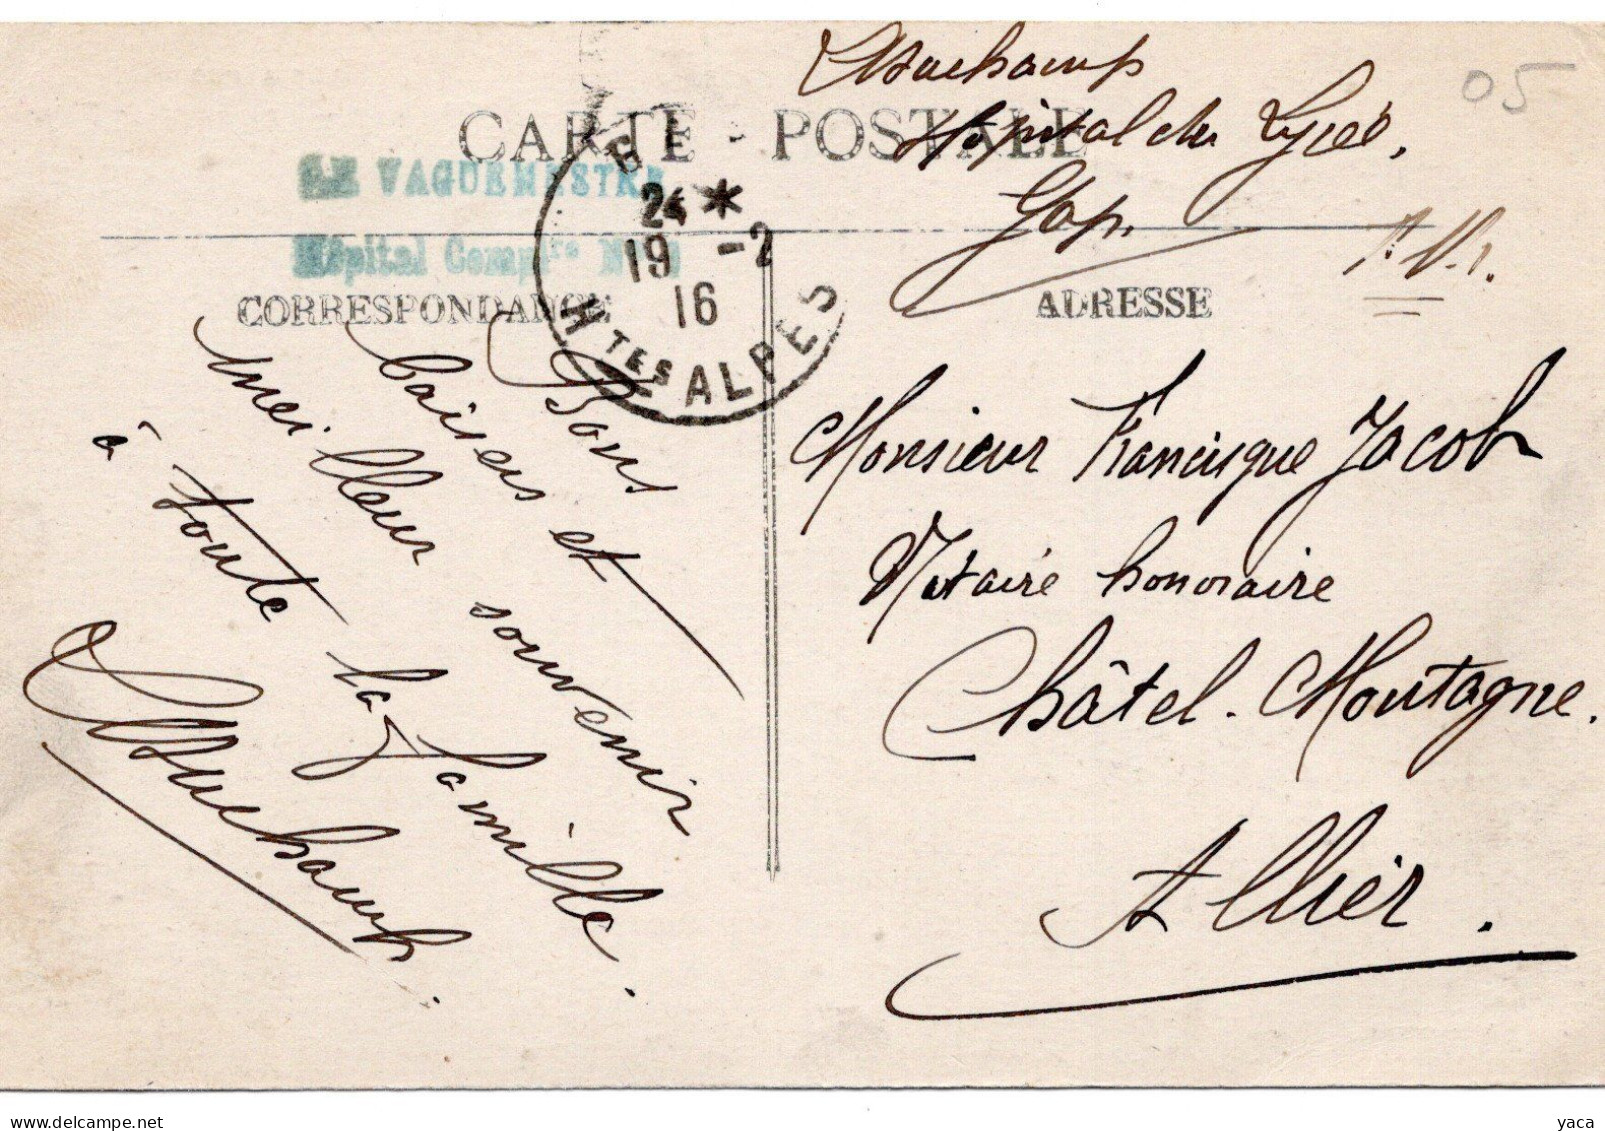 05
Hôpital du Lycée,
Gap.
CARTE POSTALE
LE VAGUEMESTRE
Hôpital Comp<sup>re</sup> N
24 *
19 -2
16
H<sup>TES</sup> ALPES
CORRESPONDANCE
ADRESSE
Bons
baisers et
meilleur souvenir
à toute la famille.
Monsieur Francisque Jacob
Notaire honoraire
Châtel-Montagne.
Allier.
www.delcampe.net
yaca